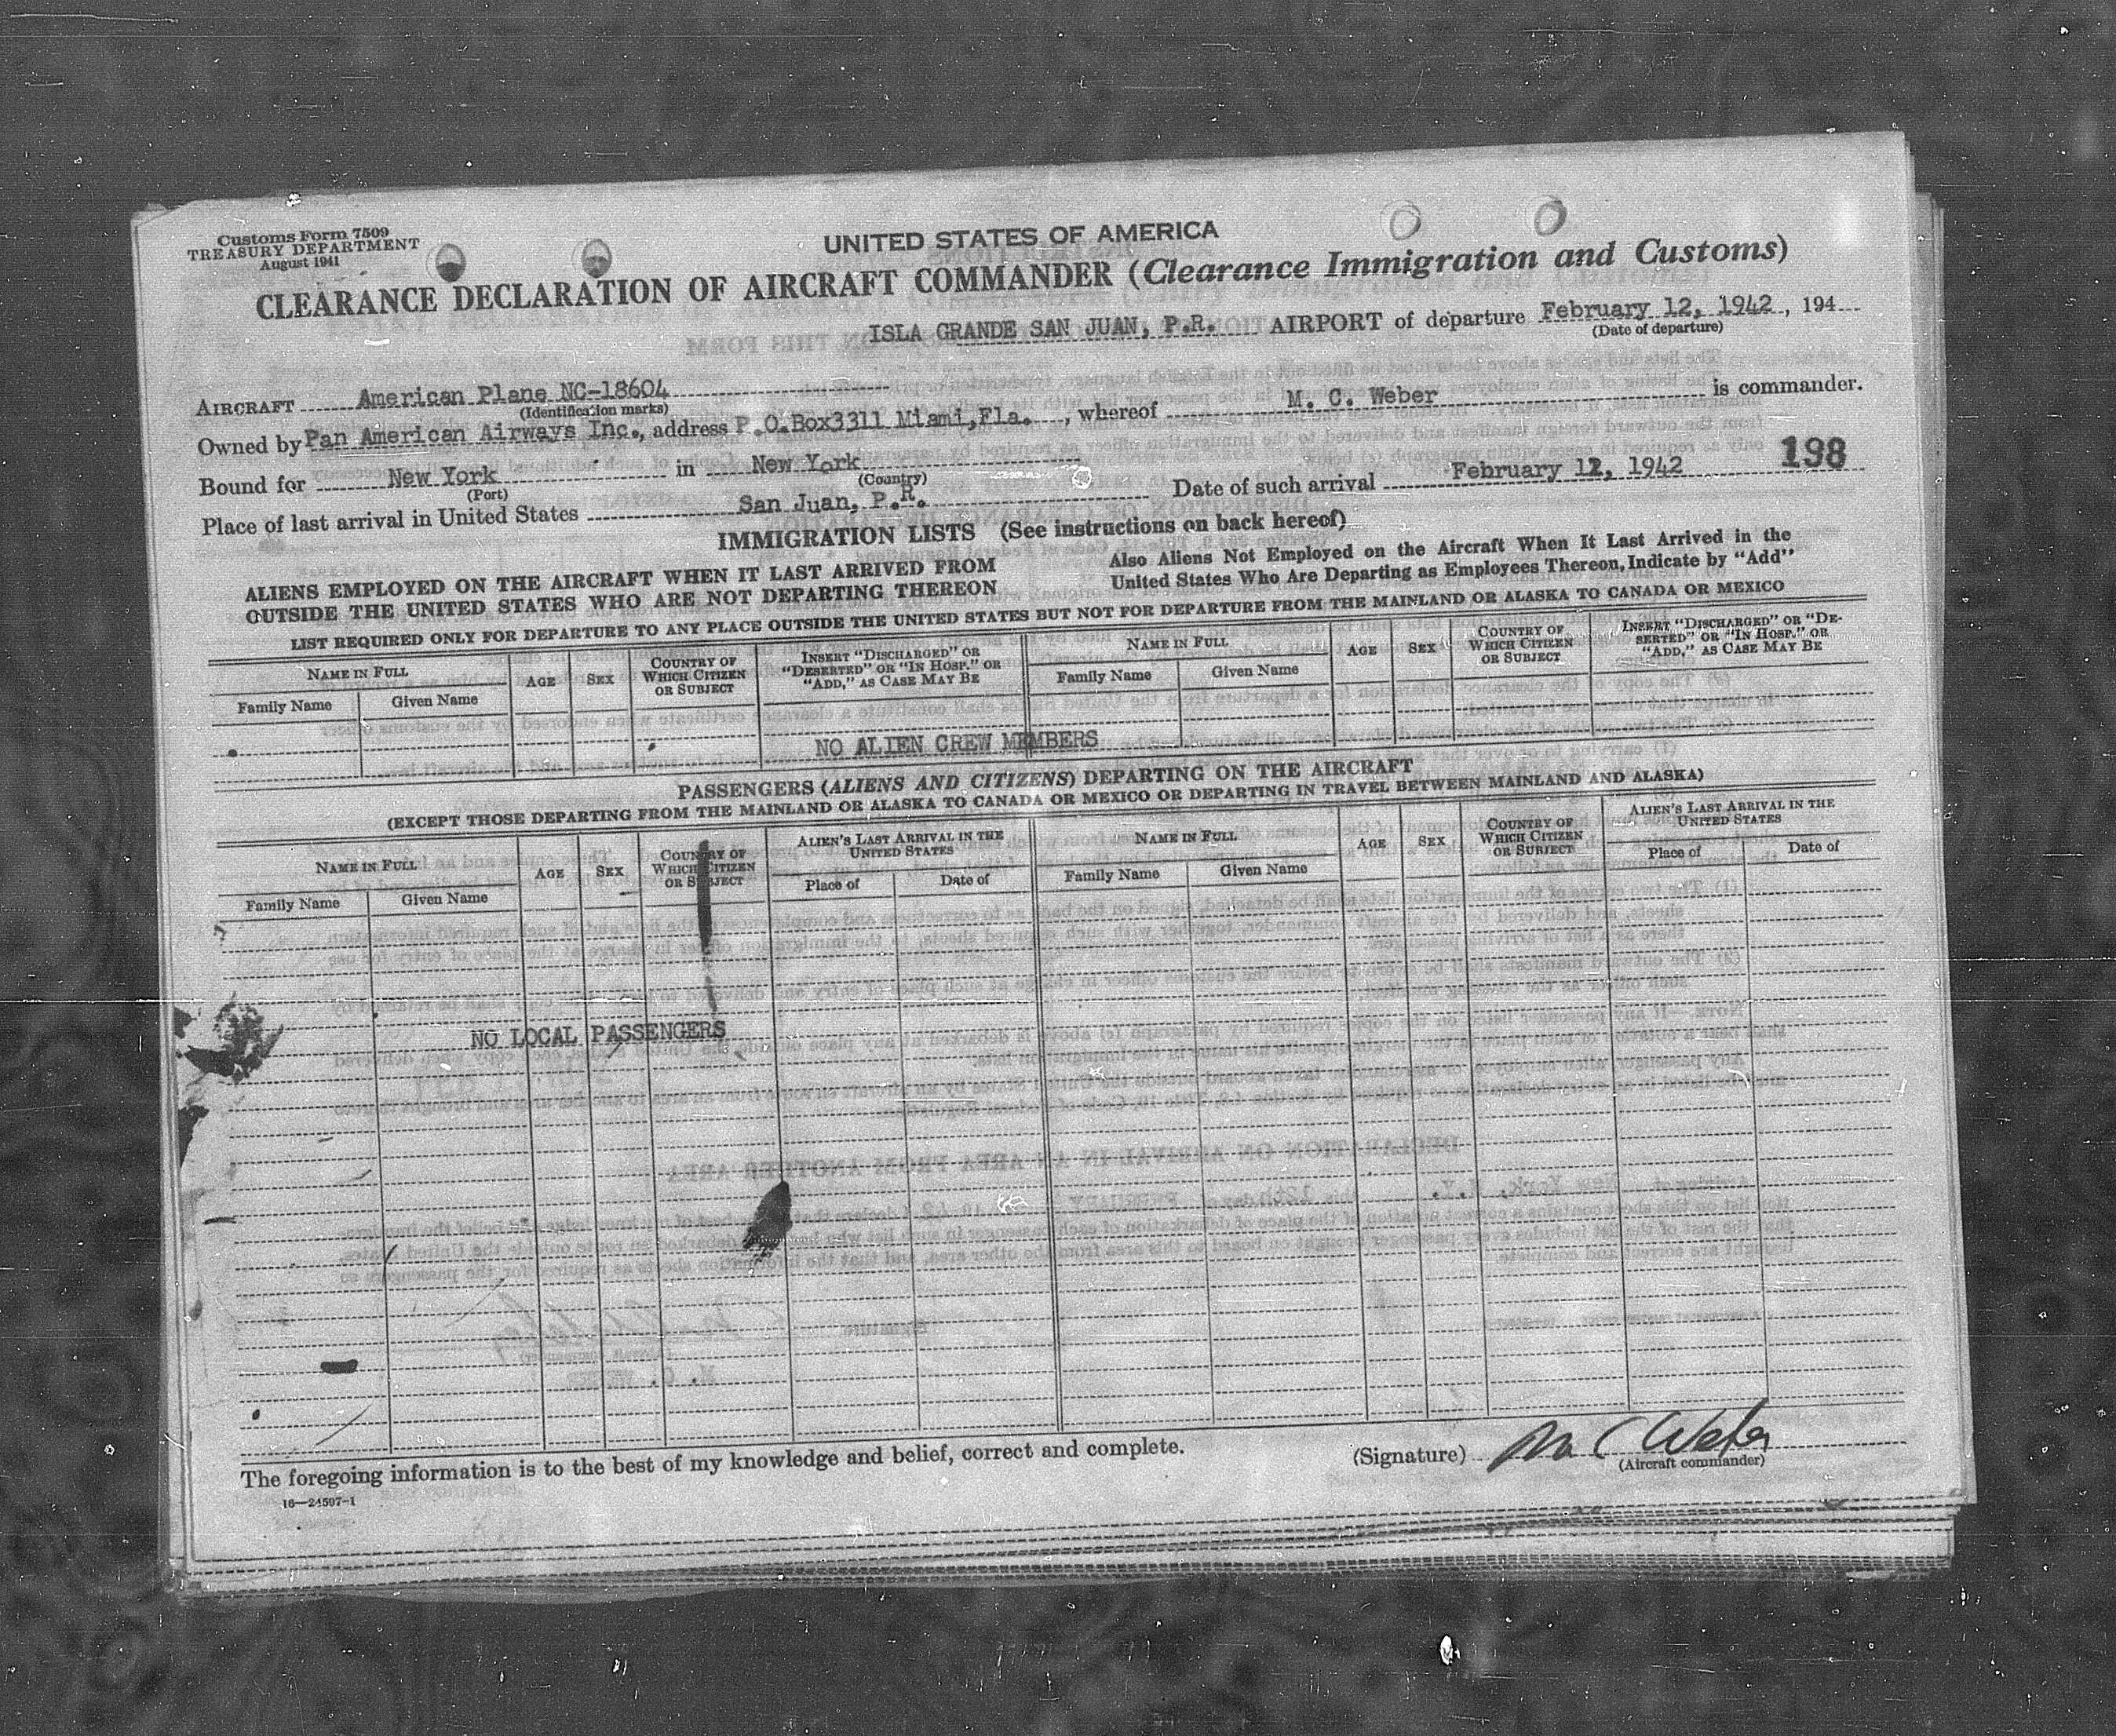 Customs Form 7509
TREASURY DEPARTMENT
August 1941
UNITED STATES OF AMERICA
CLEARANCE DECLARATION OF AIRCRAFT COMMANDER (Clearance Immigration and Customs)
ISLA GRANDE SAN JUAN, P.R. AIRPORT of departure February 12, 1942, 194
(Date of departure)
AIRCRAFT American Plane NC-18604
(Identification marks)
Owned by Pan American Airways Inc., address P.O.Box3311 Miami,Fla., whereof M. C. Weber is commander.
Bound for New York in New York
(Port) (Country)
Place of last arrival in United States San Juan, P.R. Date of such arrival February 12, 1942 198
IMMIGRATION LISTS (See instructions on back hereof)
ALIENS EMPLOYED ON THE AIRCRAFT WHEN IT LAST ARRIVED FROM
OUTSIDE THE UNITED STATES WHO ARE NOT DEPARTING THEREON
Also Aliens Not Employed on the Aircraft When It Last Arrived in the
United States Who Are Departing as Employees Thereon, Indicate by "Add"
LIST REQUIRED ONLY FOR DEPARTURE TO ANY PLACE OUTSIDE THE UNITED STATES BUT NOT FOR DEPARTURE FROM THE MAINLAND OR ALASKA TO CANADA OR MEXICO
NAME IN FULL
Family Name Given Name
AGE SEX
COUNTRY OF
WHICH CITIZEN
OR SUBJECT
INSERT "DISCHARGED" OR
"DESERTED" OR "IN HOSP." OR
"ADD," AS CASE MAY BE
NAME IN FULL
Family Name Given Name
AGE SEX
COUNTRY OF
WHICH CITIZEN
OR SUBJECT
INSERT "DISCHARGED" OR "DE-
SERTED" OR "IN HOSP." OR
"ADD," AS CASE MAY BE
NO ALIEN CREW MEMBERS
PASSENGERS (ALIENS AND CITIZENS) DEPARTING ON THE AIRCRAFT
(EXCEPT THOSE DEPARTING FROM THE MAINLAND OR ALASKA TO CANADA OR MEXICO OR DEPARTING IN TRAVEL BETWEEN MAINLAND AND ALASKA)
NAME IN FULL
Family Name Given Name
AGE SEX
COUNTRY OF
WHICH CITIZEN
OR SUBJECT
ALIEN'S LAST ARRIVAL IN THE
UNITED STATES
Place of Date of
NAME IN FULL
Family Name Given Name
AGE SEX
COUNTRY OF
WHICH CITIZEN
OR SUBJECT
ALIEN'S LAST ARRIVAL IN THE
UNITED STATES
Place of Date of
NO LOCAL PASSENGERS
The foregoing information is to the best of my knowledge and belief, correct and complete.
(Signature) M C Weber
(Aircraft commander)
16—24597-1